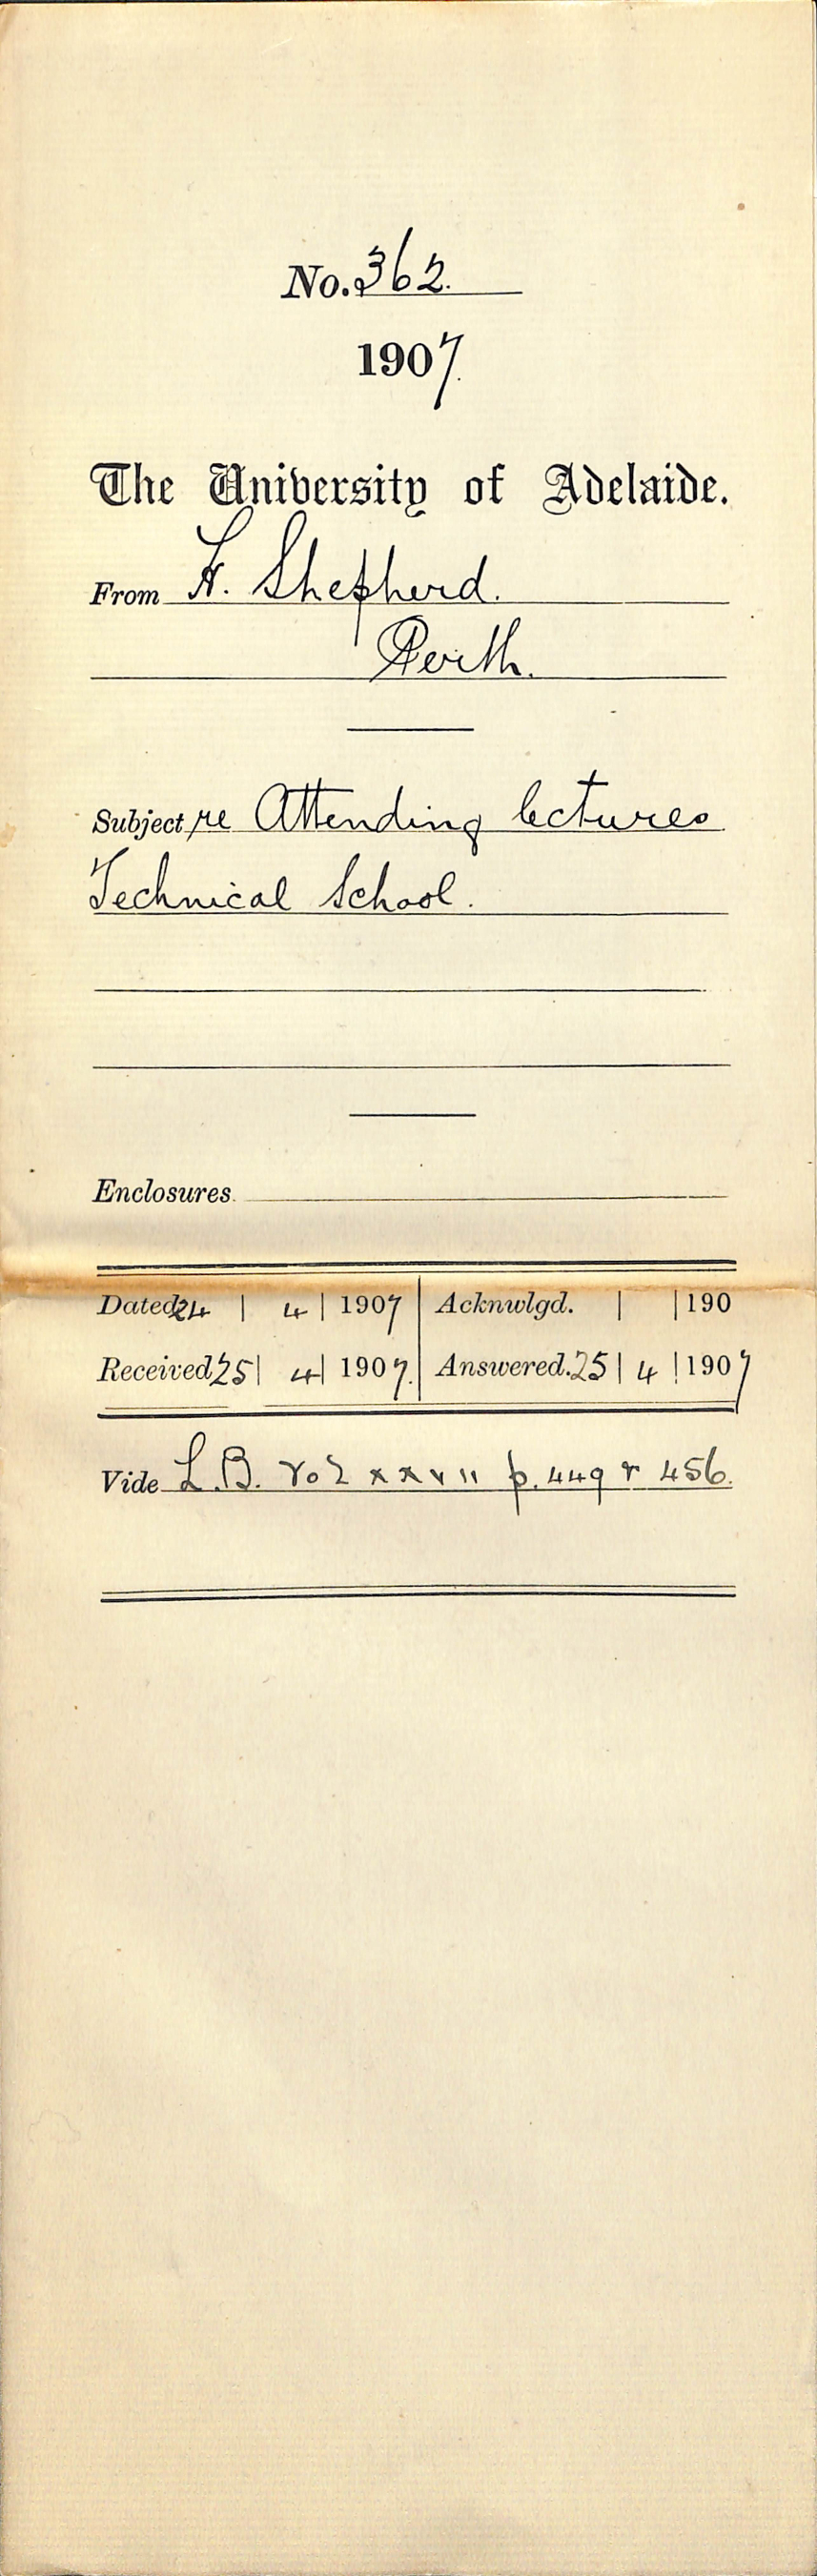 No. 362.
1907.
The University of Adelaide.
From F. Shepherd.
Perth.
Subject re Attending lectures
Technical School.
Enclosures.
Dated 24 | 4 | 1907 Acknwlgd. | | 190
Received 25 | 4 | 1907. Answered. 25 | 4 | 1907
Vide L.B. Vol xxvii p. 449 & 456.